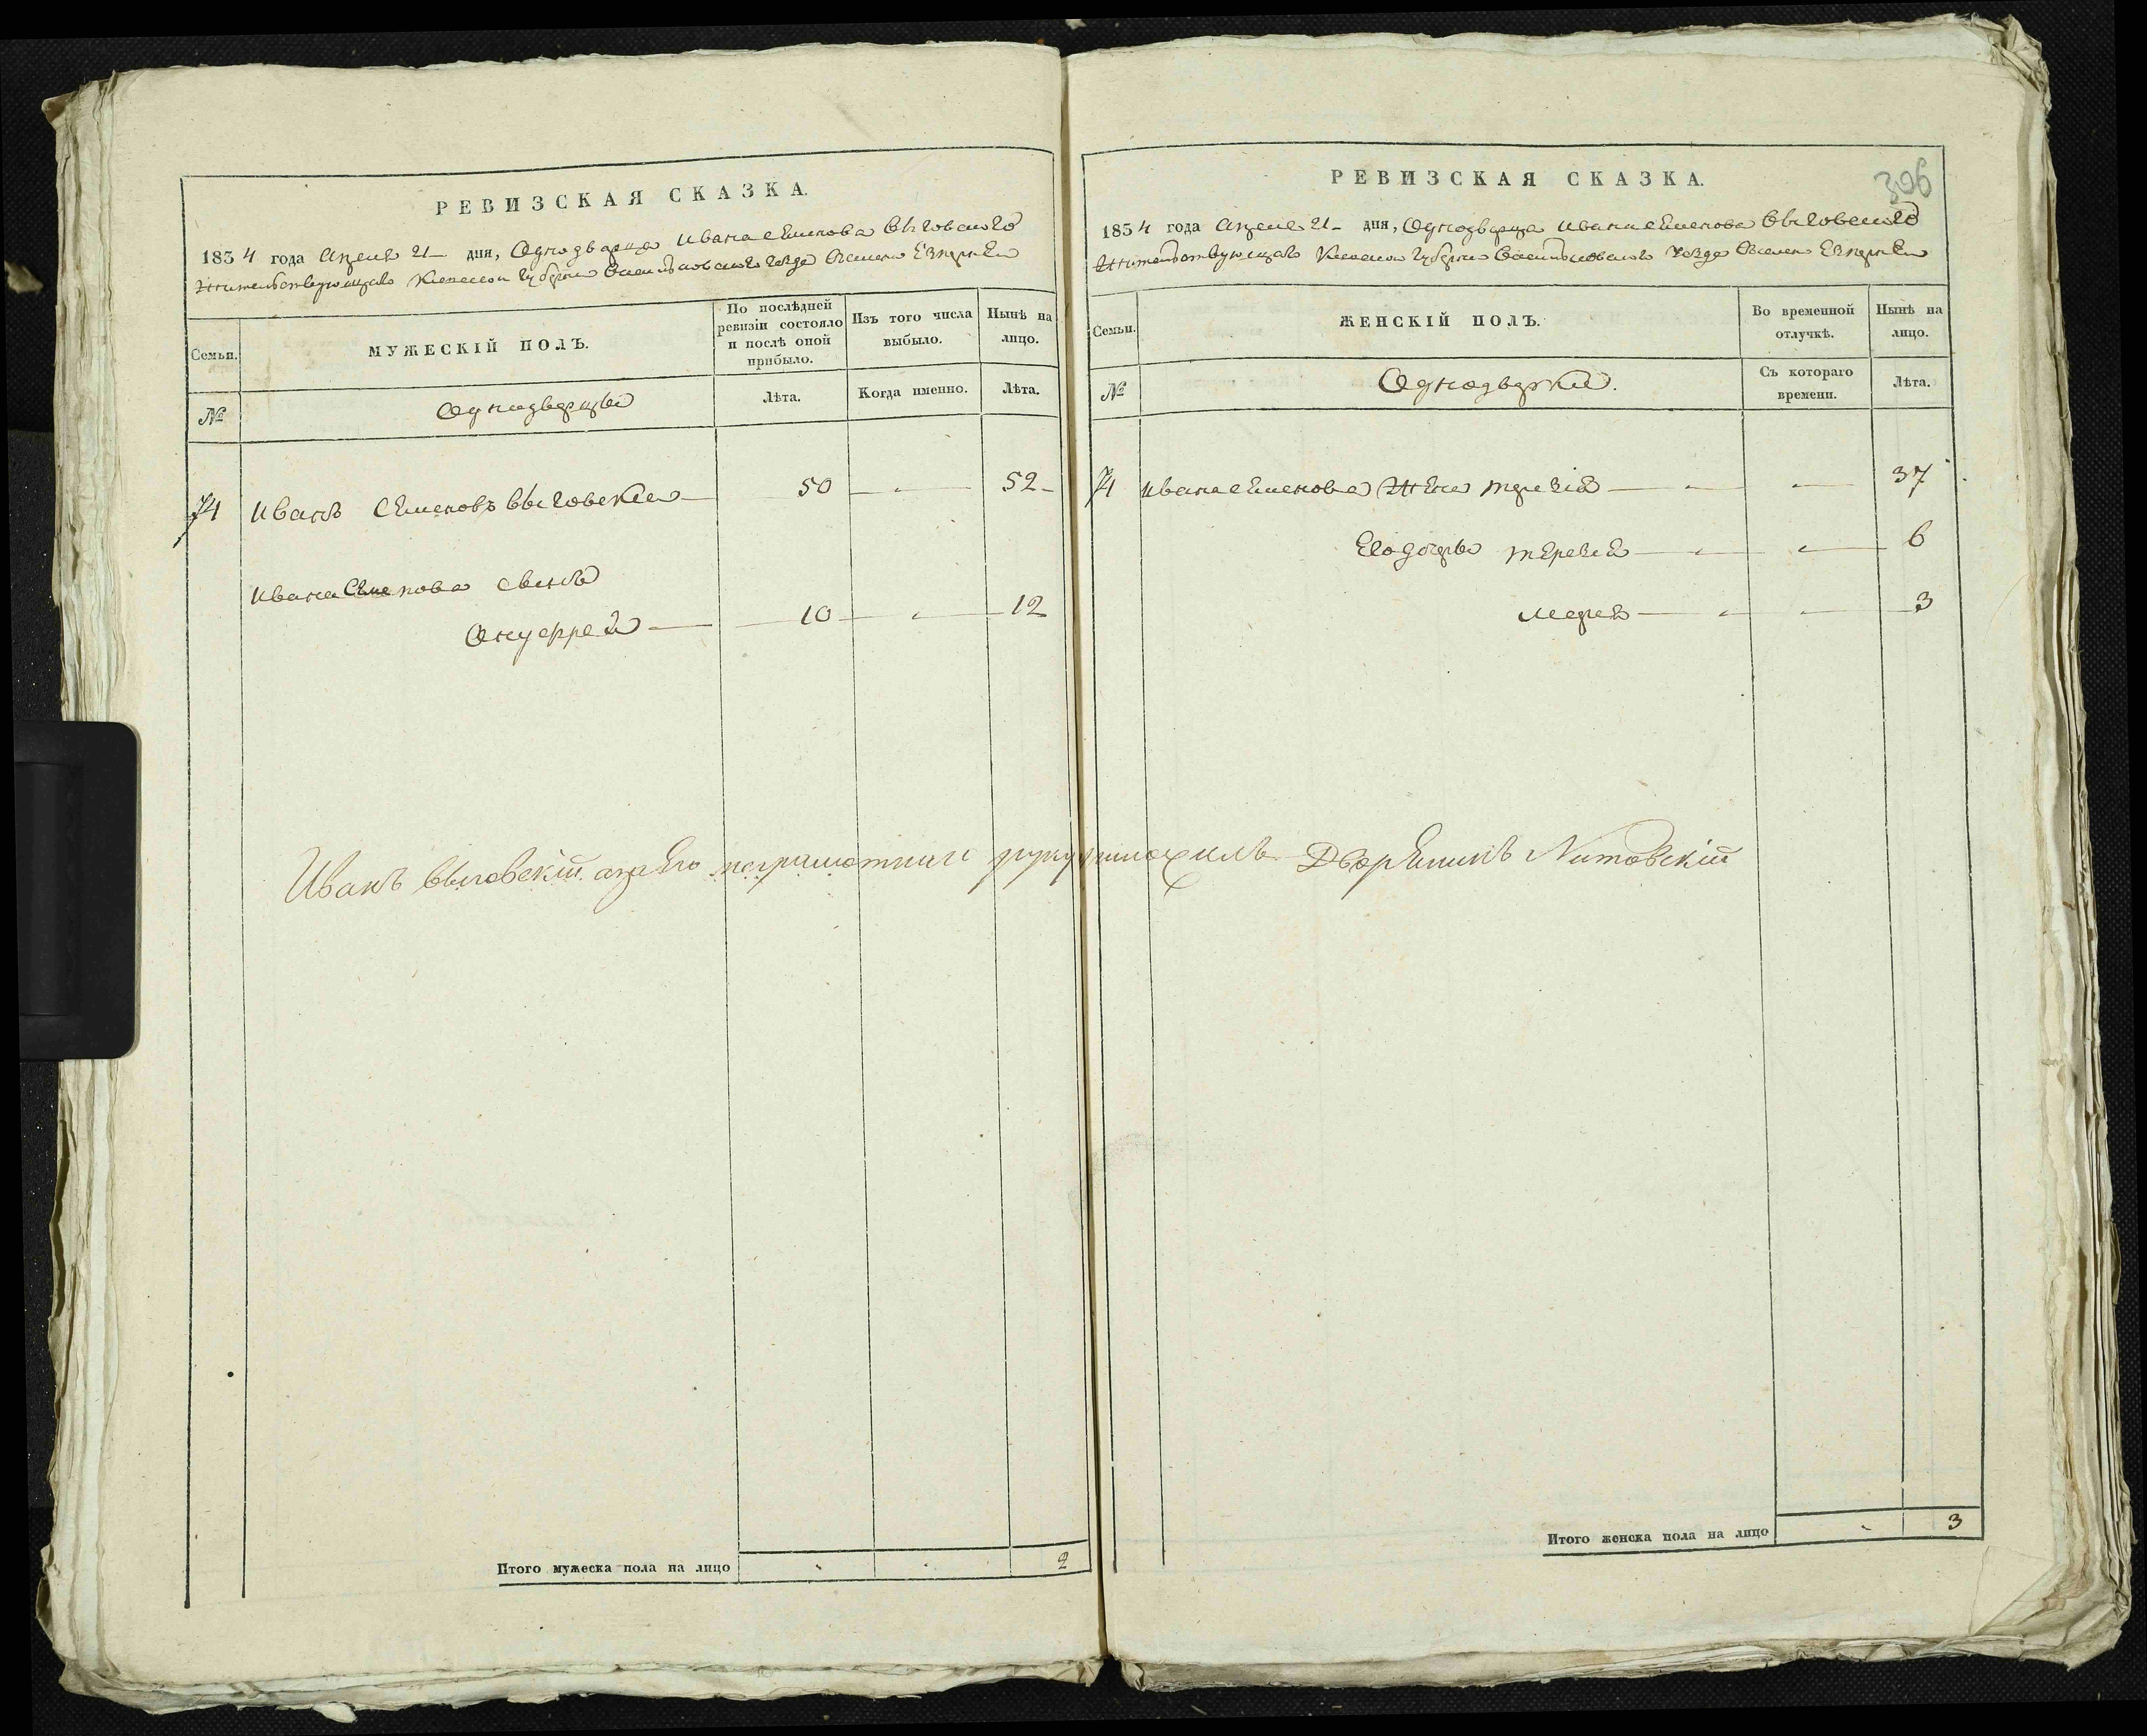 РЕВИЗСКАЯ СКАЗКА.
1834 года апреля 21 дня, Однодворца Ивана Семенова Выговского
Жительствующаго Киевской Губернии Васильковского уезда
Семьи.
МУЖЕСКІЙ ПОЛЪ.
По послѣдней ревизіи состояло и послѣ оной прибыло.
Изъ того числа выбыло.
Нынѣ на лицо.
№
Однодворцы
Лѣта.
Когда именно.
Лѣта.
74 Иванъ Семеновъ Выговский 50 52
Ивана Семенова сынъ
Онуфрей 10 12
Иванъ Выговскій а за его неграмотного руку приложилъ Дворянинъ
Итого мужеска пола на лицо 2
306
РЕВИЗСКАЯ СКАЗКА.
1834 года апреля 21 дня, Однодворца Ивана Семенова Выговского
Жительствующаго Киевской Губернии Васильковского уезда
Семьи.
ЖЕНСКІЙ ПОЛЪ.
Во временной отлучкѣ.
Нынѣ на лицо.
№
Однодворки.
Съ котораго времени.
Лѣта.
74 Ивана Семенова жена 37
Его дочери 6
3
Итого женска пола на лицо 3